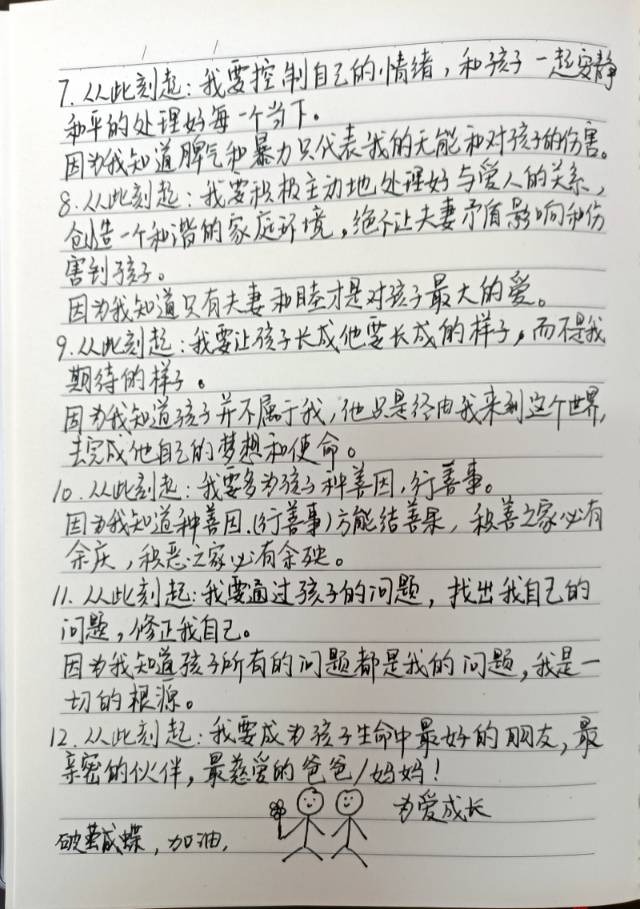 7. 从此刻起：我要控制自己的情绪，和孩子一起安静
和平的处理好每一个当下。
因为我知道脾气和暴力只代表我的无能和对孩子的伤害。
8. 从此刻起：我要积极主动地处理好与爱人的关系，
创造一个和谐的家庭环境，绝不让夫妻矛盾影响和伤
害到孩子。
因为我知道只有夫妻和睦才是对孩子最大的爱。
9. 从此刻起：我要让孩子长成他要长成的样子，而不是我
期待的样子。
因为我知道孩子并不属于我，他只是经由我来到这个世界，
去完成他自己的梦想和使命。
10. 从此刻起：我要多为孩子种善因，行善事。
因为我知道种善因.(行善事)方能结善果，积善之家必有
余庆，积恶之家必有余殃。
11. 从此刻起：我要通过孩子的问题，找出我自己的
问题，修正我自己。
因为我知道孩子所有的问题都是我的问题，我是一
切的根源。
12. 从此刻起：我要成为孩子生命中最好的朋友，最
亲密的伙伴，最慈爱的爸爸/妈妈！
为爱成长
破茧成蝶，加油，